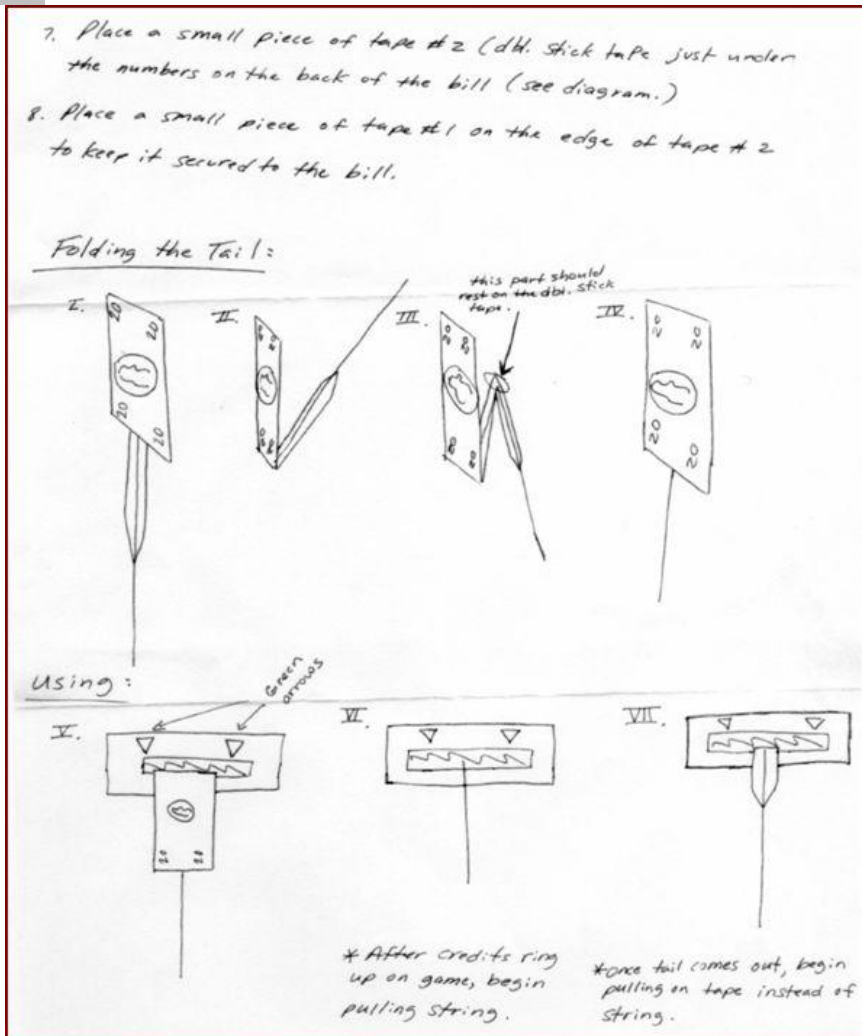 7. Place a small piece of tape #2 (dbl. stick tape just under
the numbers on the back of the bill (see diagram.)
8. Place a small piece of tape #1 on the edge of tape #2
to keep it secured to the bill.
Folding the Tail:
this part should
rest on the dbl. stick
tape.
I.
II.
III.
IV.
20 20
20 20
20 20
20 20
20 20
20 20
20 20
20 20
using:
Green
arrows
V.
VI.
VII.
20 20
* After credits ring
up on game, begin
pulling string.
*once tail comes out, begin
pulling on tape instead of
string.